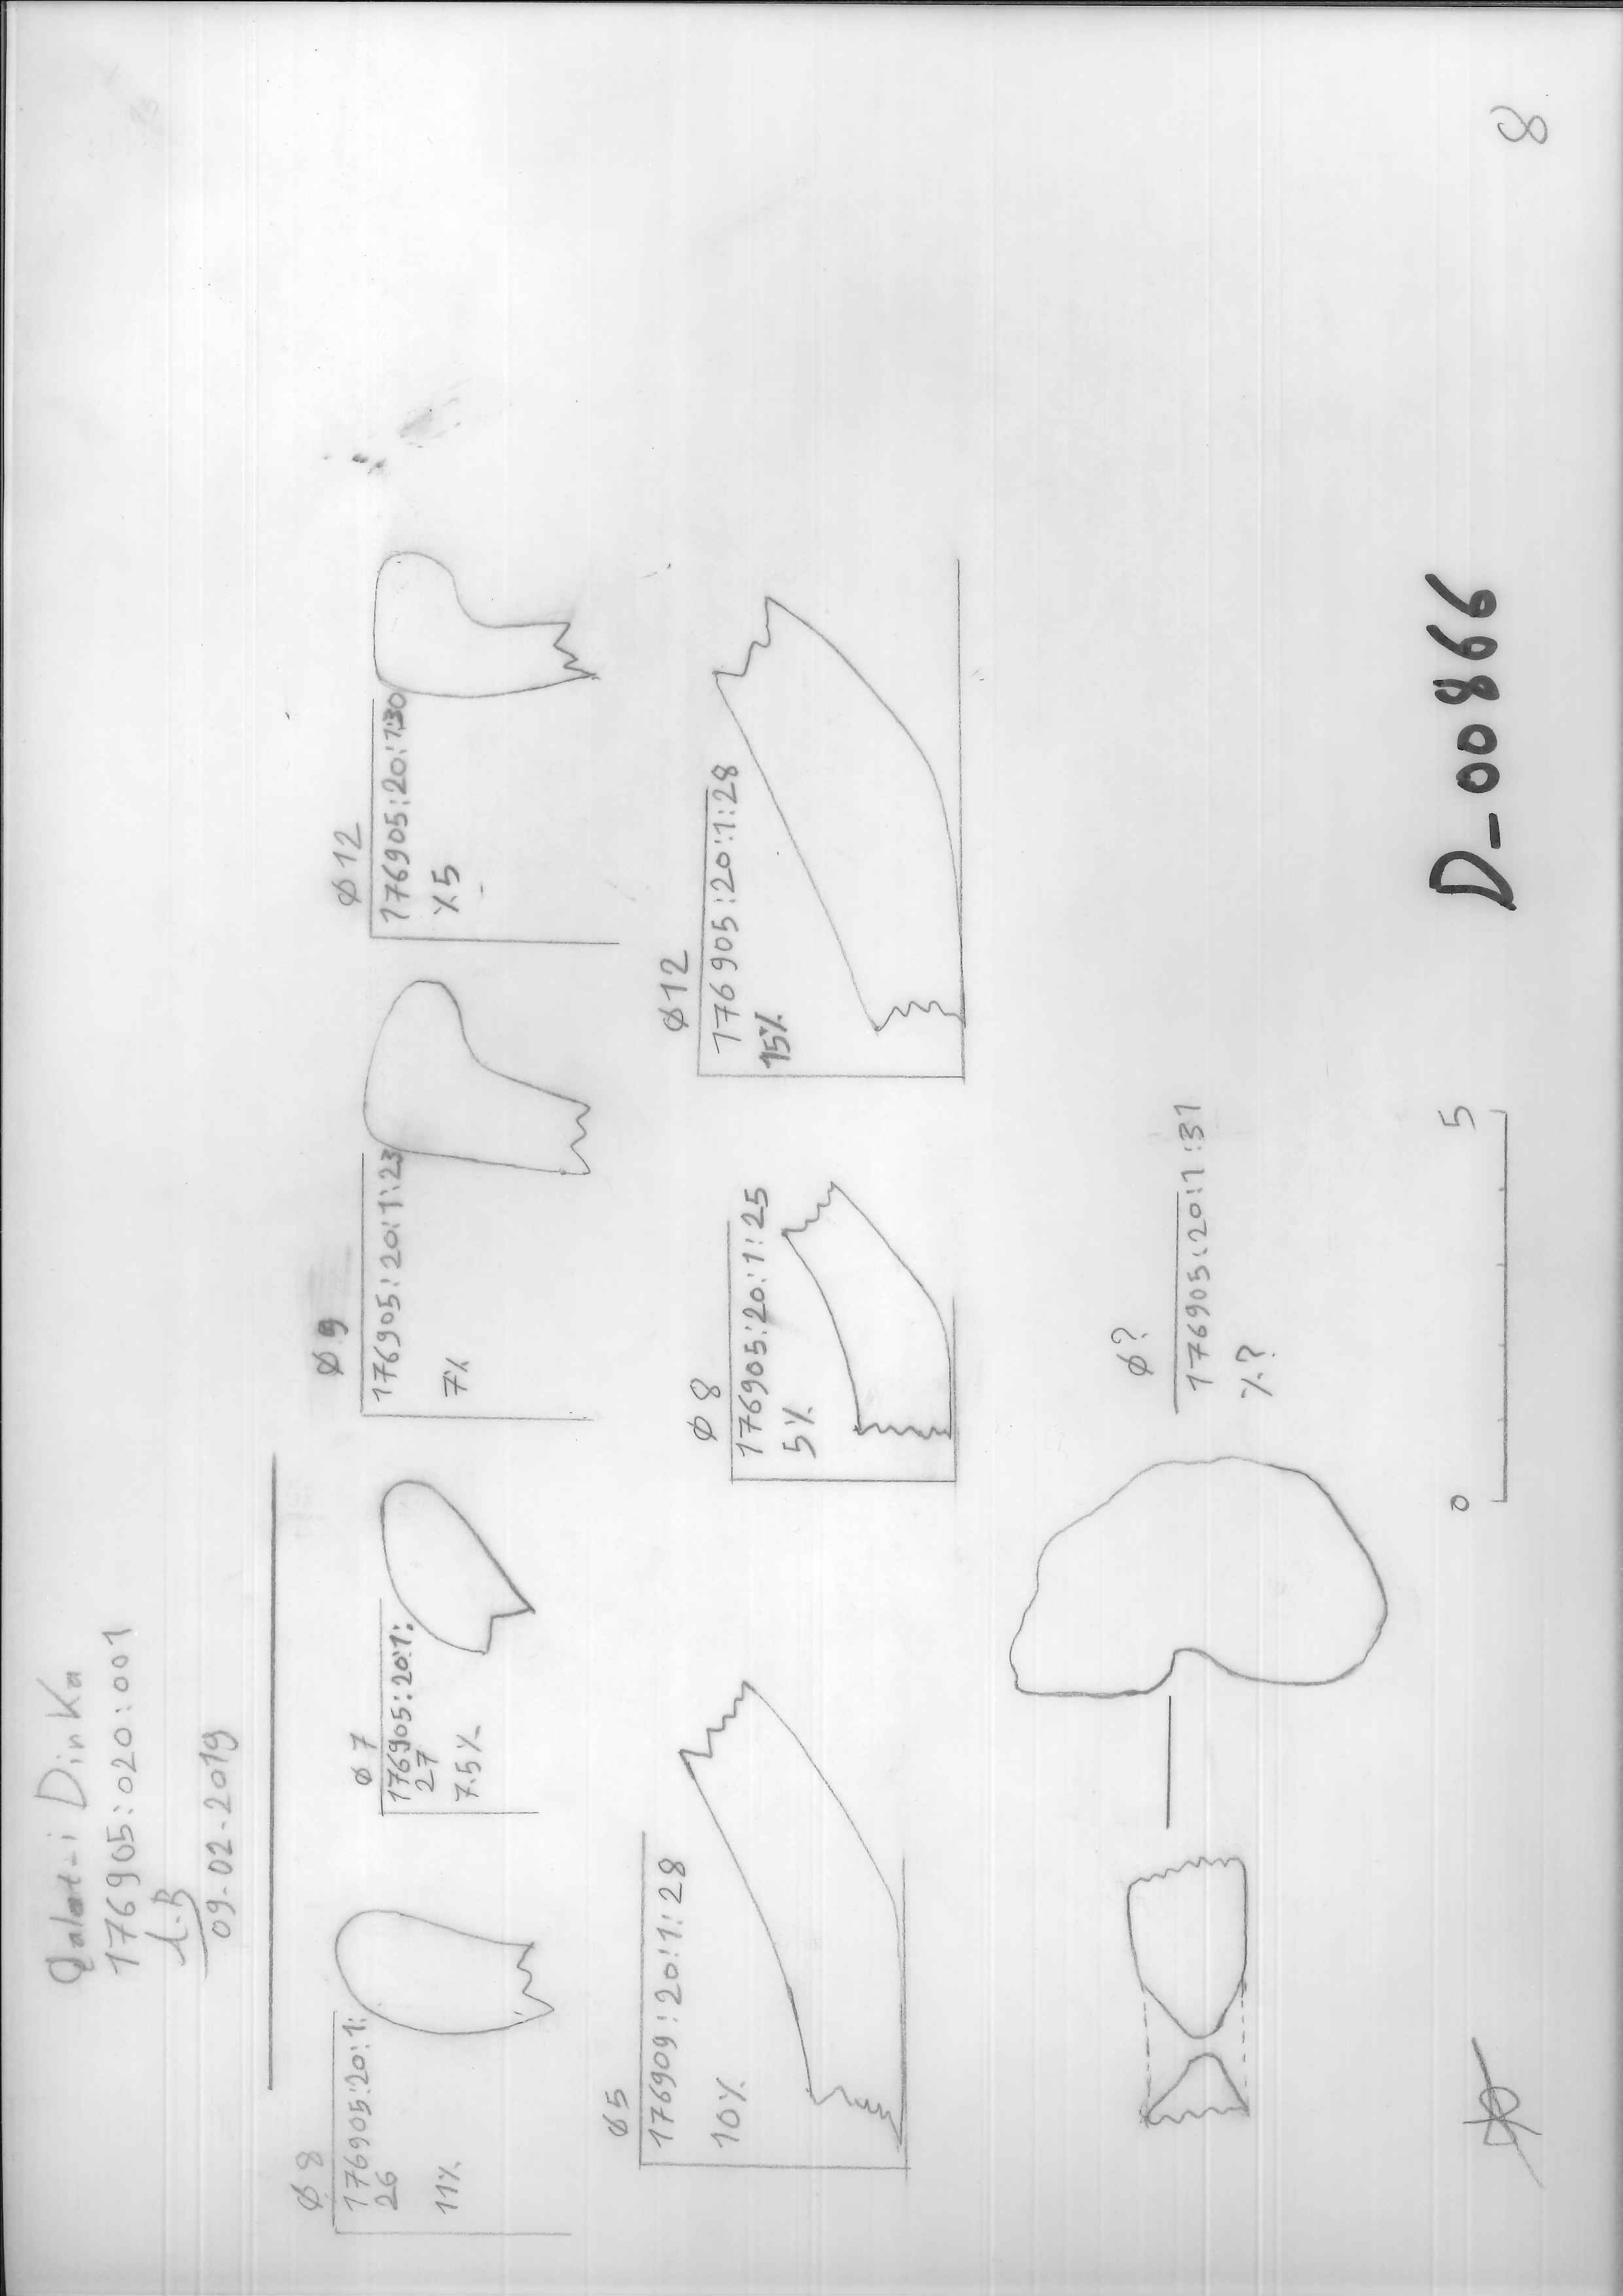 Qalat-i Dinka
176905:020:001
A.B
09-02-2019
Ø 8
176905:20:1:
26
11%
Ø 7
176905:20:1:
27
7.5%
Ø 9
176905:20:1:23
7%
Ø 12
176905:20:1:30
%5
Ø 5
176909:20:1:28
10%
Ø 8
176905:20:1:25
5%
Ø 12
176905:20:1:28
15%
Ø?
176905:20:1:31
%?
0 5
D-00866
8